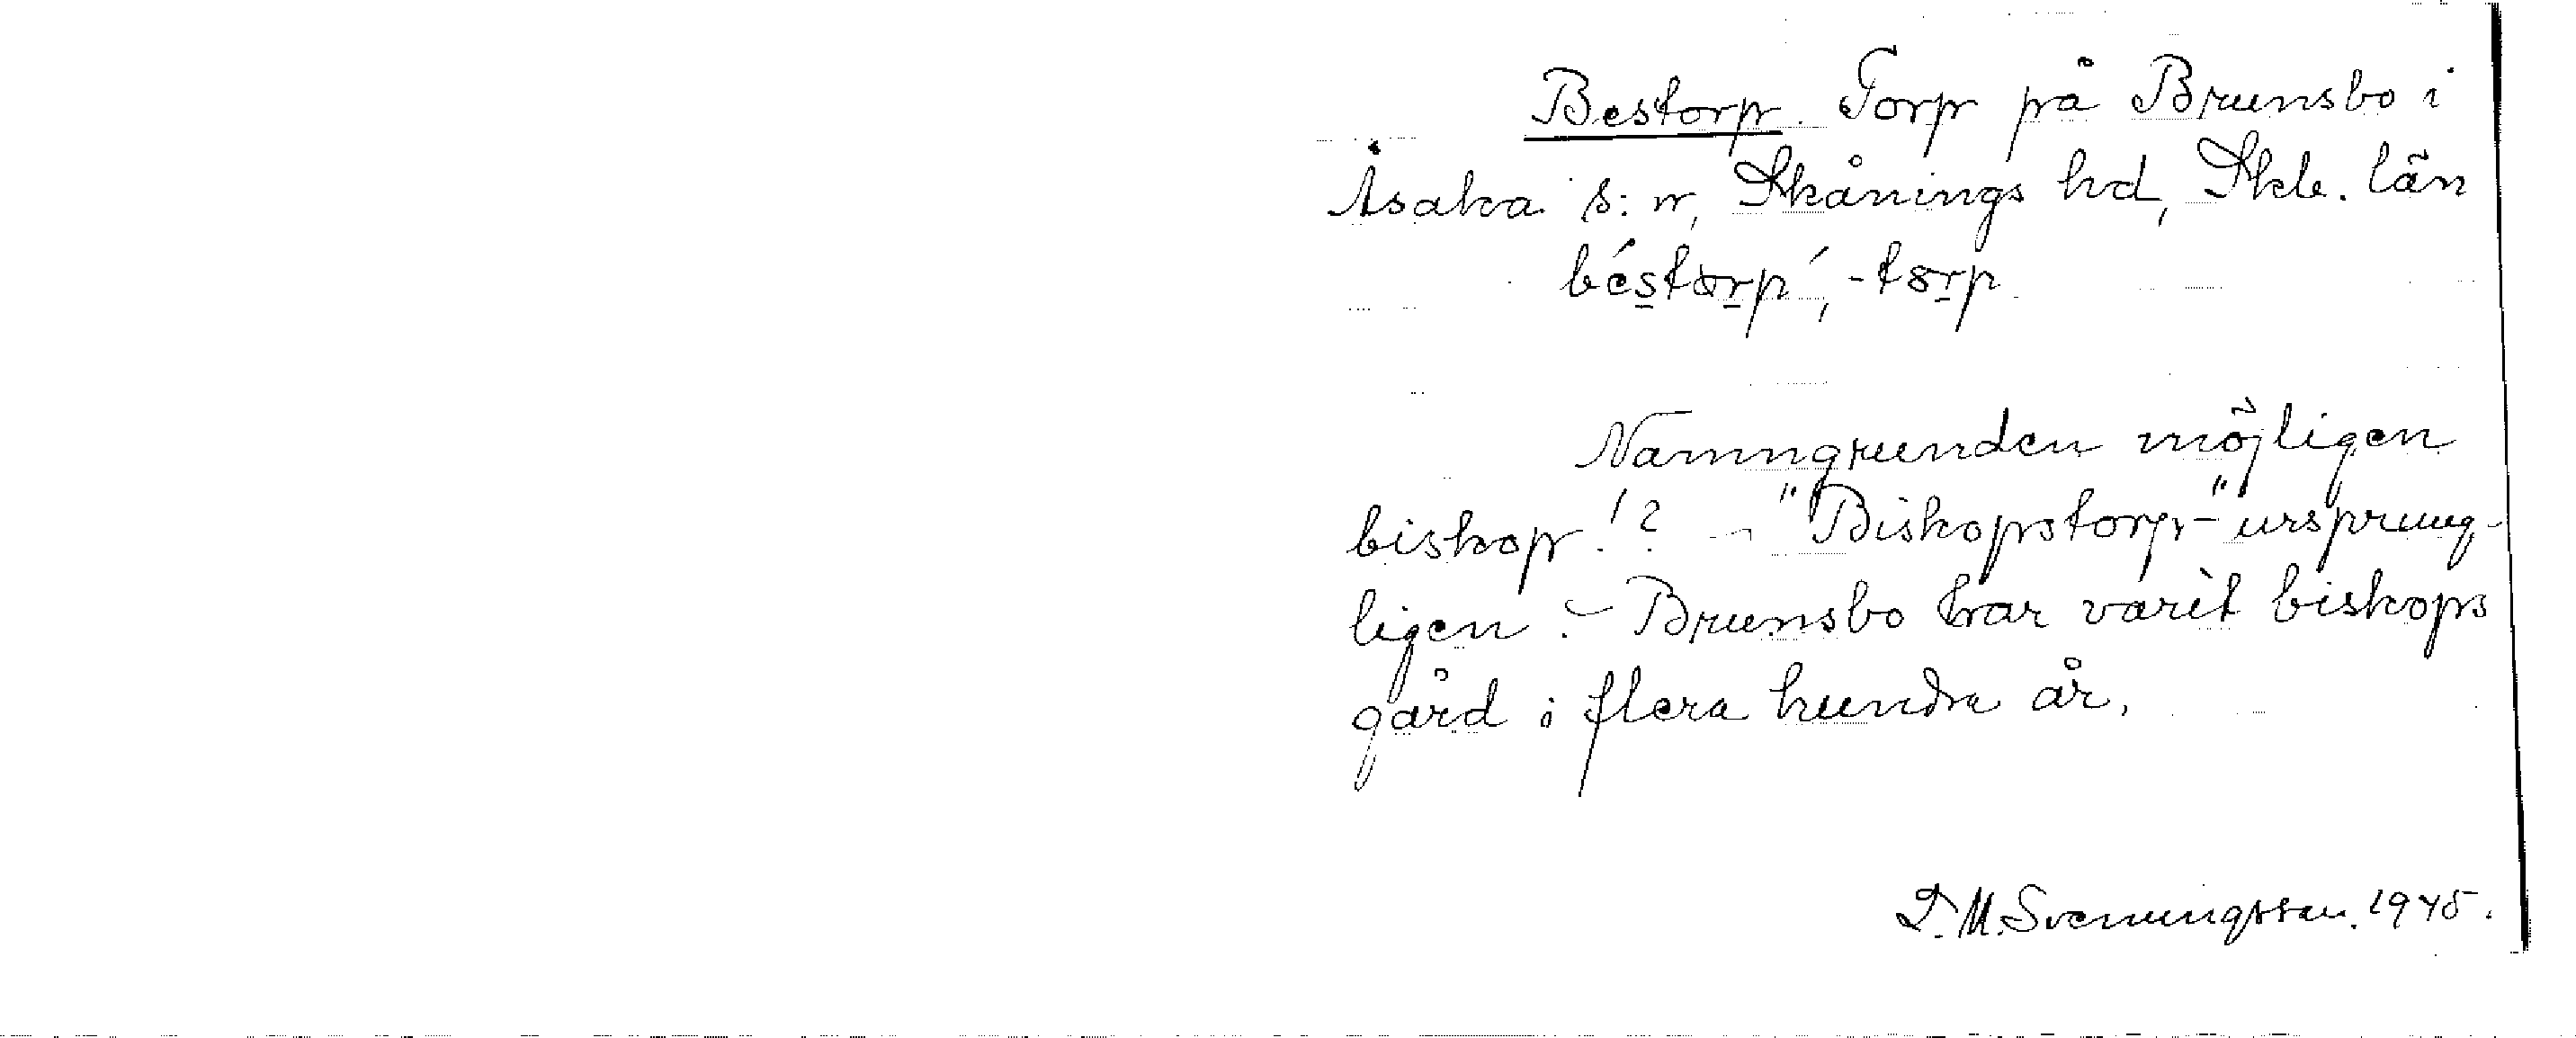 Bestorp. Torp på Brunsbo i
Åsaka s:n, Skånings hd, Skb. län
béstorp´, -tørp
Namngrunden möjligen
biskop!? - "Biskopstorp-" ursprung-
ligen? - Brunsbo har varit biskops
gård i flera hundra år.
D. M. Svenningsson. 1945.